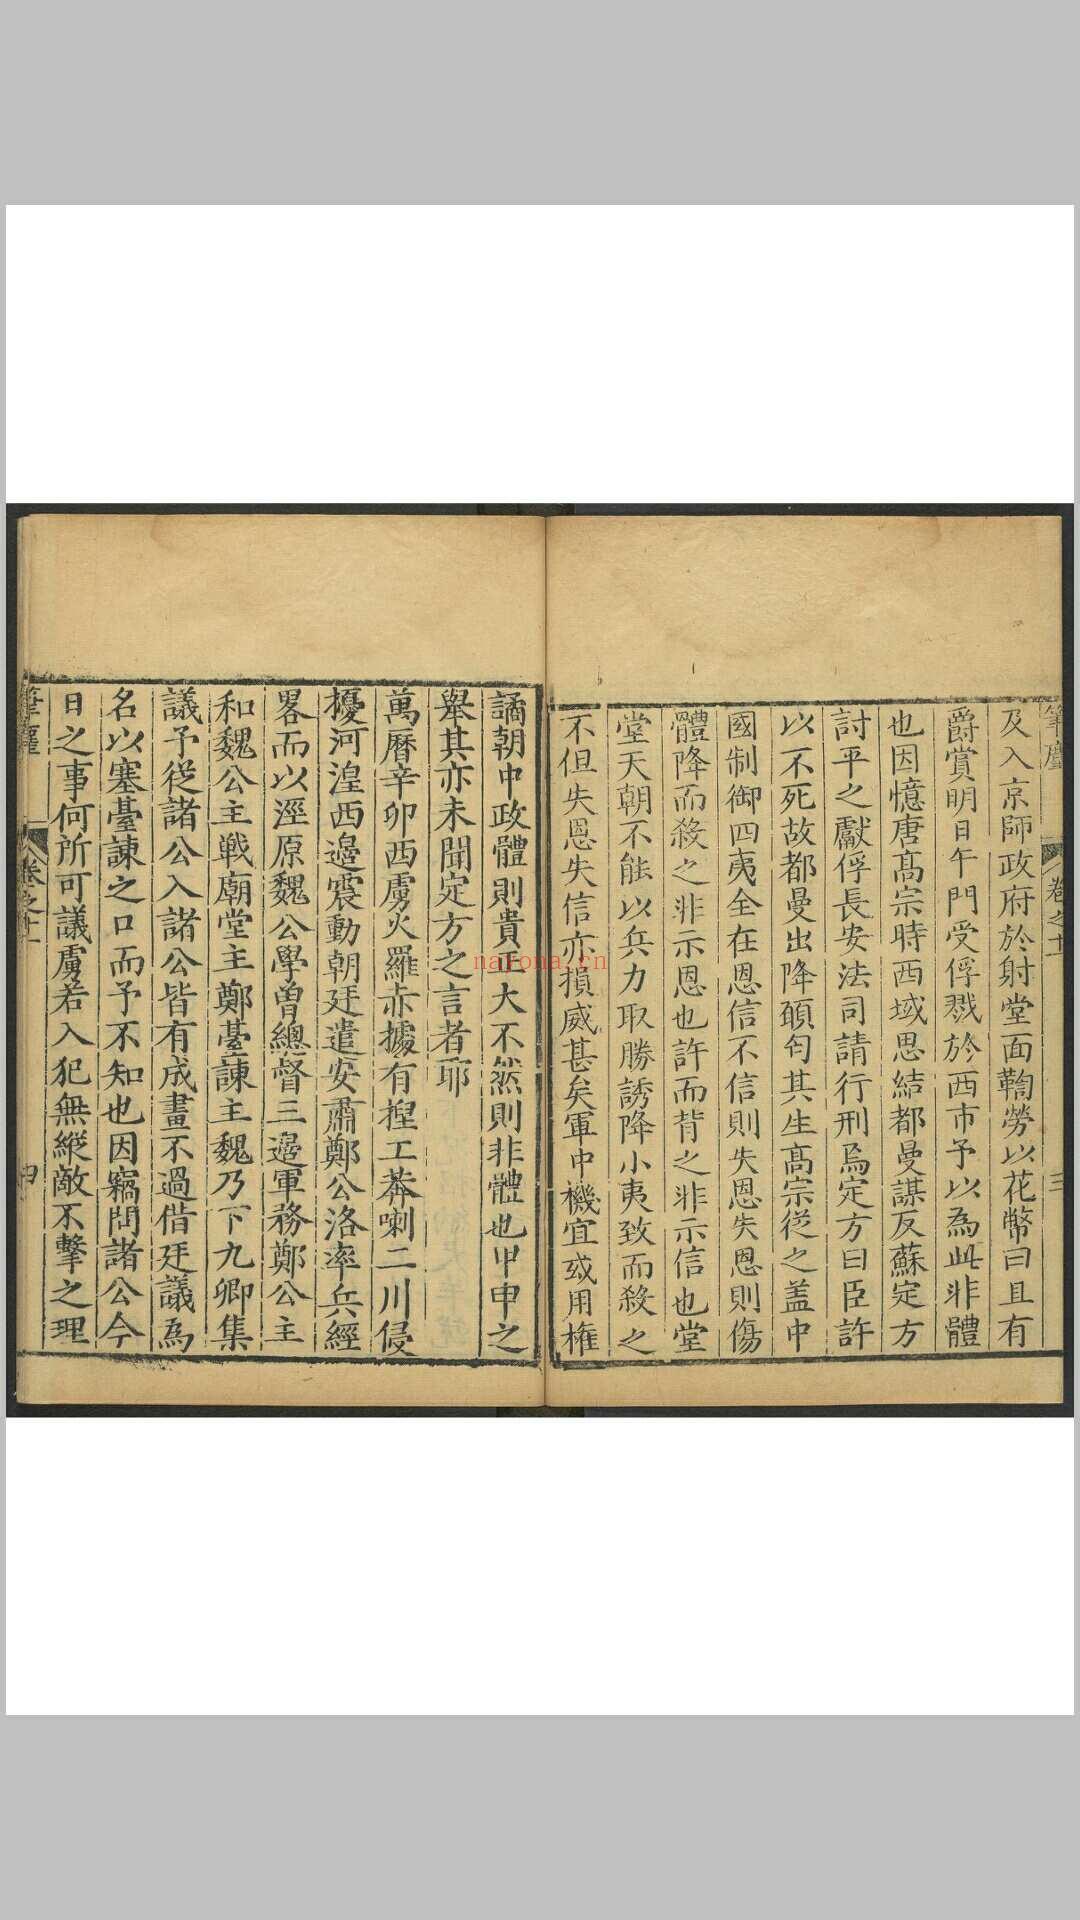 筆麈 卷之十一 三
及入京師政府於射堂面鞫勞以花幣曰且有
爵賞明日午門受俘戮於西市予以為此非體
也因憶唐高宗時西域思結都曼謀反蘇定方
討平之獻俘長安法司請行刑焉定方曰臣許
以不死故都曼出降願匄其生高宗從之蓋中
國制御四夷全在恩信不信則失恩失恩則傷
體降而殺之非示恩也許而背之非示信也堂
堂天朝不能以兵力取勝誘降小夷致而殺之
不但失恩失信亦損威甚矣軍中機宜或用權
譎朝中政體則貴正大不然則非體也甲申之
舉其亦未聞定方之言者耶
萬曆辛卯西虜火羅赤據有捏工莽喇二川侵
擾河湟西邉震動朝廷遣安肅鄭公洛率兵經
畧而以涇原魏公學曾總督三邉軍務鄭公主
和魏公主戰廟堂主鄭臺諫主魏乃下九卿集
議予從諸公入諸公皆有成畫不過借廷議為
名以塞臺諫之口而予不知也因竊問諸公今
日之事何所可議虜若入犯無縱敵不擊之理
筆麈 卷之十一 四
nayona.cn